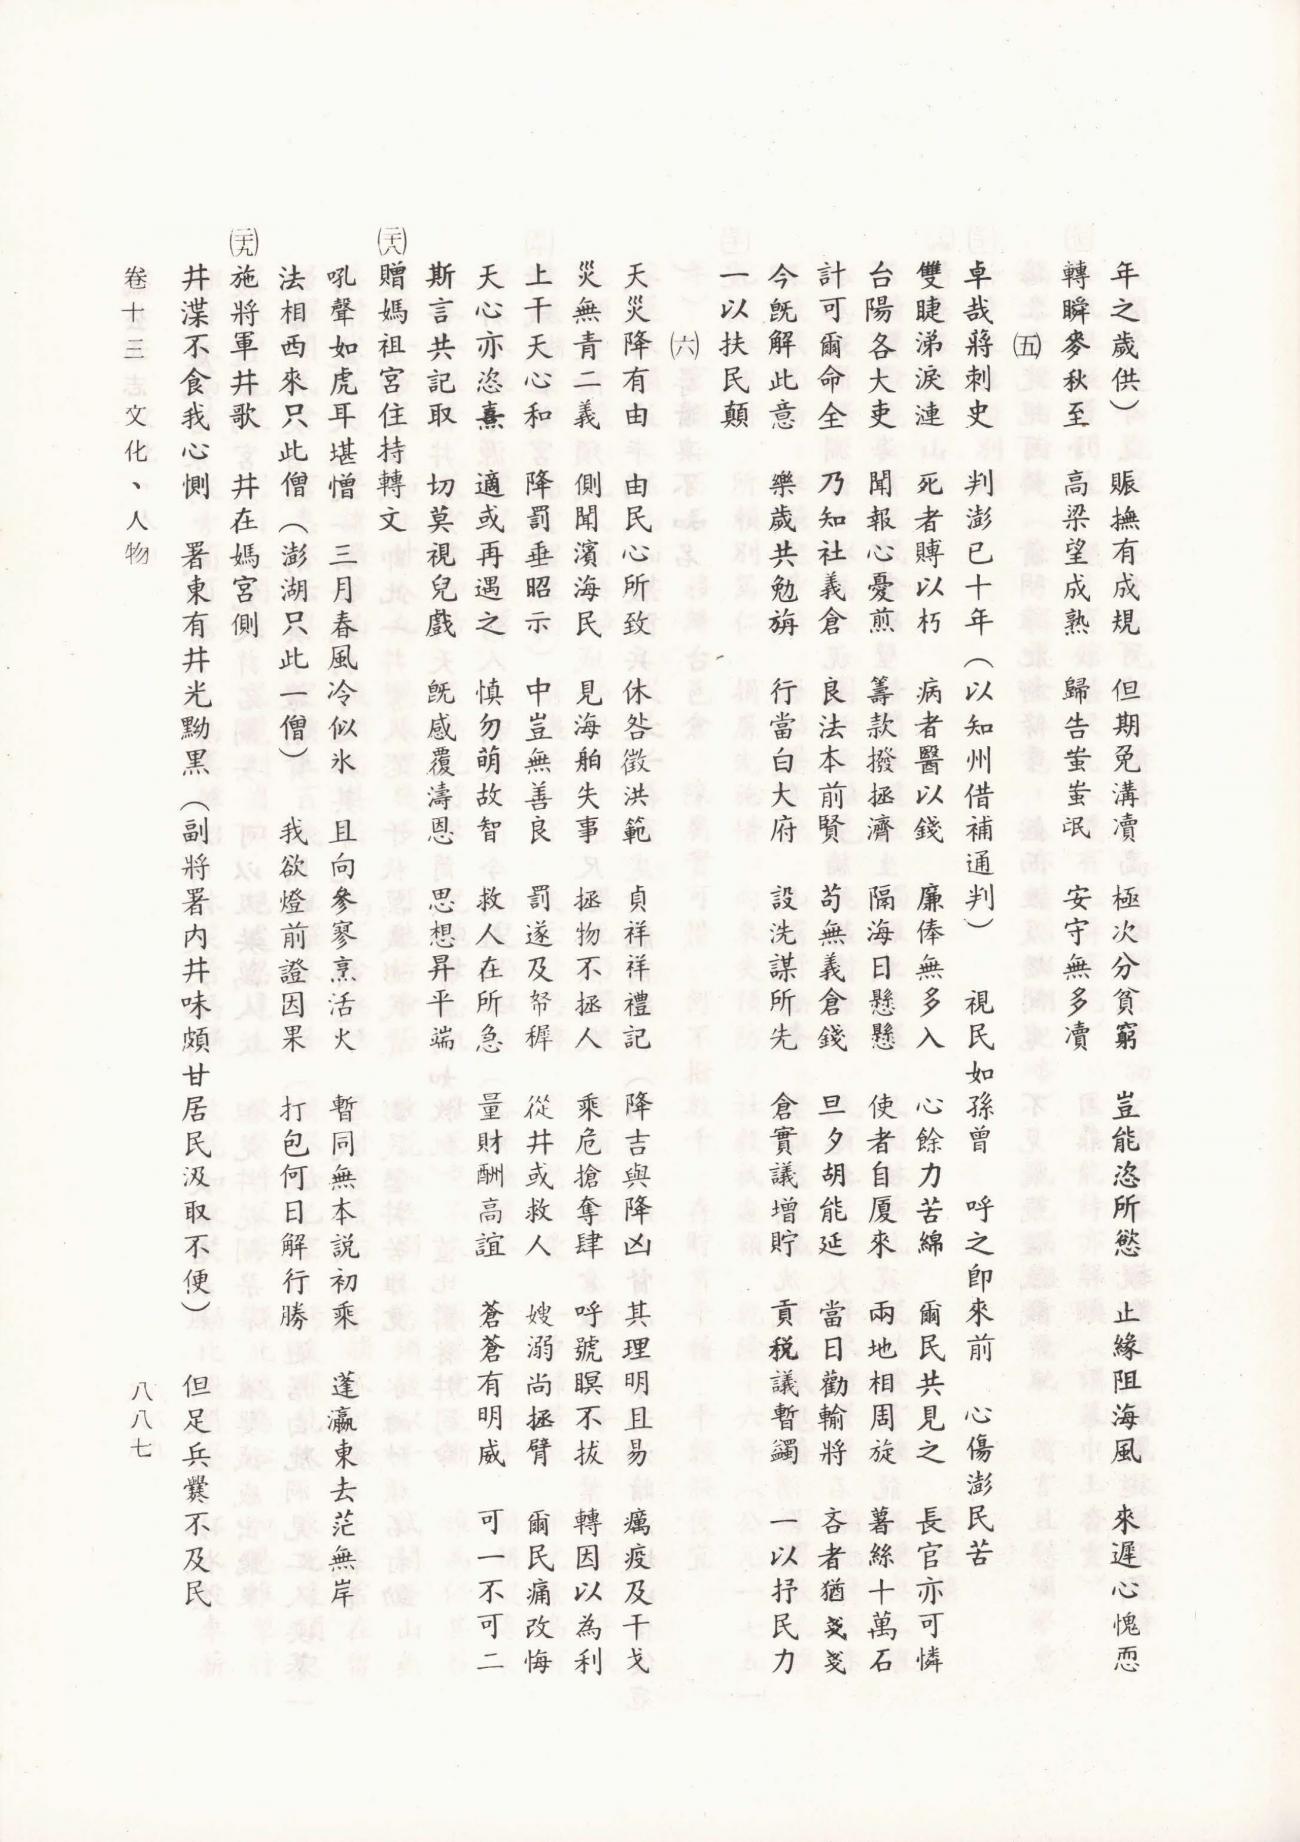 年之歲供） 賑撫有成規 但期免溝瀆 極次分貧窮 豈能恣所慾 止緣阻海風 來遲心愧恧
轉瞬麥秋至 高梁望成熟 歸告蚩蚩氓 安守無多瀆
㈤
卓哉蔣刺史 判澎已十年（以知州借補通判） 視民如孫曾 呼之卽來前 心傷澎民苦
雙睫涕淚漣 死者賻以朽 病者醫以錢 廉俸無多入 心餘力苦綿 爾民共見之 長官亦可憐
台陽各大吏 聞報心憂煎 籌款撥拯濟 隔海日懸懸 使者自厦來 兩地相周旋 薯絲十萬石
計可爾命全 乃知社義倉 良法本前賢 苟無義倉錢 旦夕胡能延 當日勸輸將 吝者猶戔戔
今旣解此意 樂歲共勉旃 行當白大府 設洗謀所先 倉實議增貯 貢税議暫蠲 一以抒民力
一以扶民顛
㈥
天災降有由 由民心所致 休咎徵洪範 貞祥祥禮記 降吉與降凶 其理明且易 癘疫及干戈
災無青二義 側聞濱海民 見海舶失事 拯物不拯人 乘危搶奪肆 呼號瞑不拔 轉因以為利
上干天心和 降罰垂昭示 中豈無善良 罰遂及帑穉 從井或救人 嫂溺尚拯臂 爾民痛改悔
天心亦恣熹 適或再遇之 慎勿萌故智 救人在所急 量財酬高誼 蒼蒼有明威 可一不可二
斯言共記取 切莫視兒戲 旣感覆濤恩 思想昇平端
(二十八)贈媽祖宮住持轉文
吼聲如虎耳堪憎 三月春風冷似氷 且向參寥烹活火 暫同無本説初乘 蓬瀛東去茫無岸
法相西來只此僧（澎湖只此一僧） 我欲燈前證因果 打包何日解行勝
(二十九)施將軍井歌 井在媽宮側
井渫不食我心惻 署東有井光黝黑（副將署内井味頗甘居民汲取不便） 但足兵爨不及民
卷十三志文化、人物
八八七